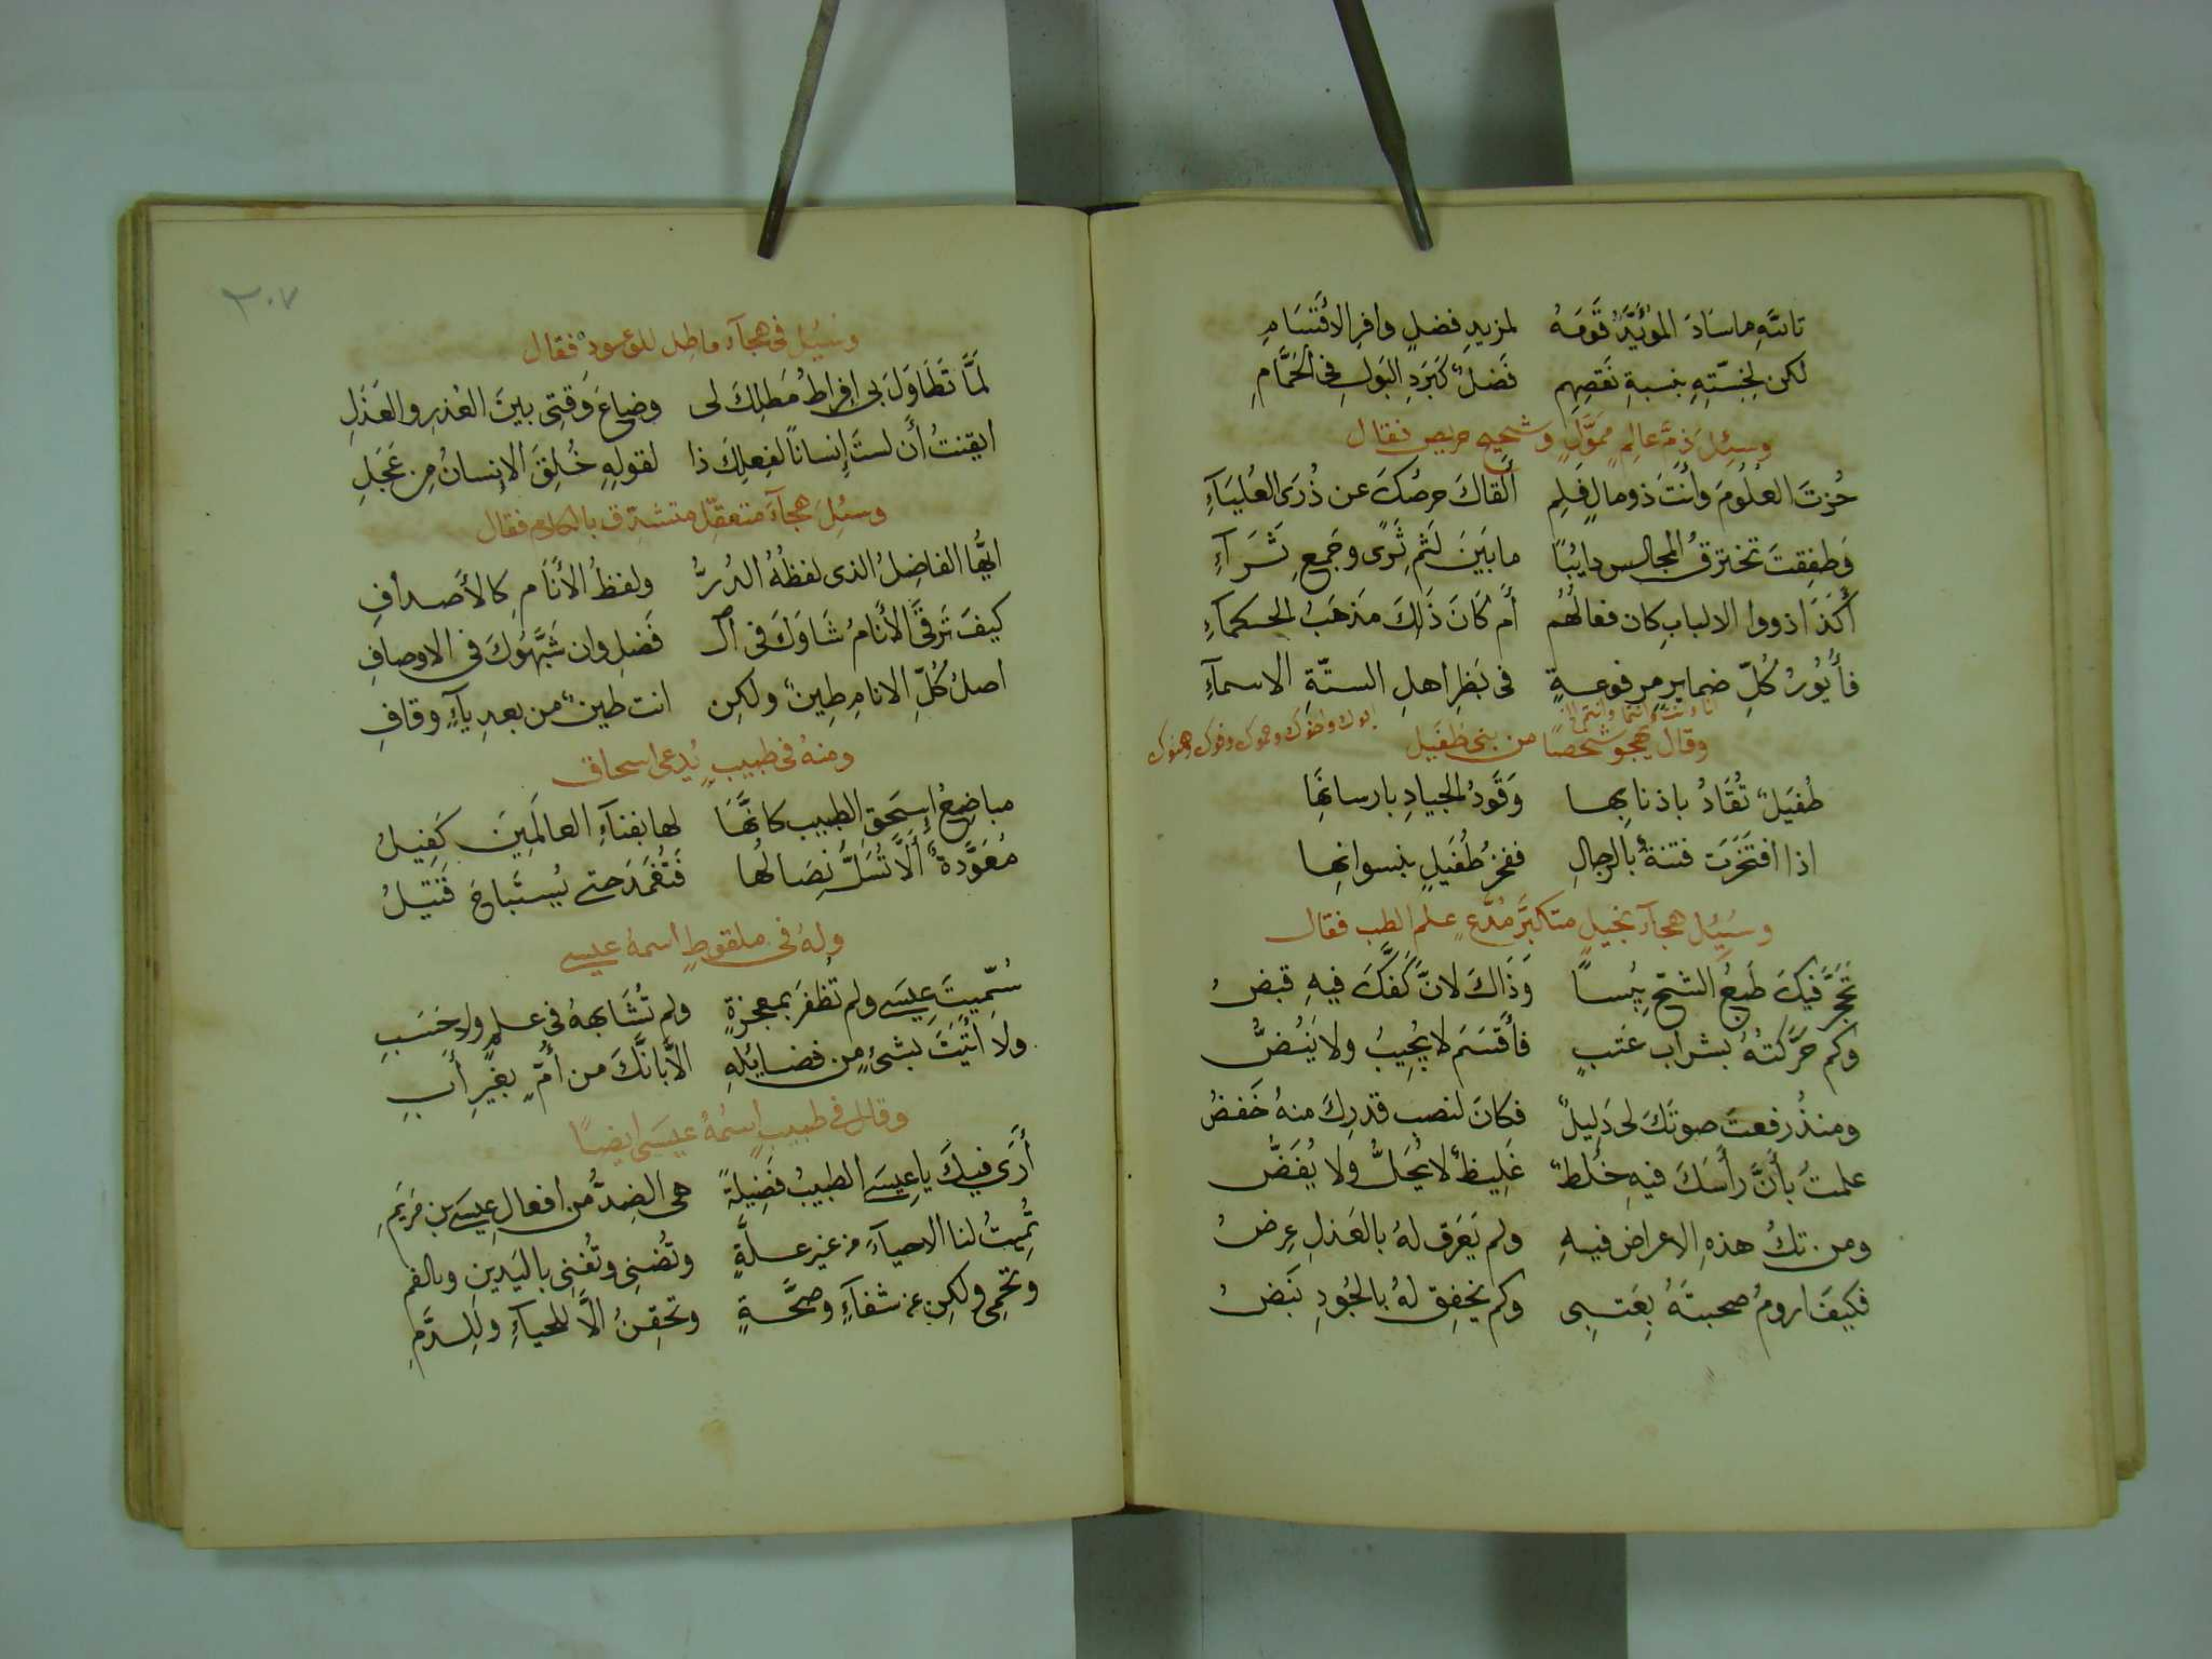 تاللهِ ما سَادَ المؤيَّدُ قَومَهُ لمزيدِ فضلٍ وافرِ الاقتسَامِ
لكن لِخِسَّتِهِ بنسبةِ نَقصِهِم فَضلٌ كَبَردِ البَولِ فى الحَمَّامِ
وسئِلَ ذمَّ عالمٍ مموّلٍ وشحيحٍ حريص فقال
حُزتَ العلُومَ وأنتَ ذو مالٍ فلِم ألقاكَ حرصُكَ عن ذُرَى العُليَآءِ
وَطفِقتَ تخترقُ المجالس دايبًا ما بَينَ لَثمِ ثَرًى وجَمعِ ثَرَآءِ
أكَذَا ذووا الالبابِ كان فعالُهُم أم كَانَ ذَلكَ مَذهَبُ الحكمآءِ
فأيُورُ كُلِّ ضمايرٍ مرفوعةٍ فى بَظرِ اهلِ الستّةِ الاسمآءِ
انا وانت وانتما وانتم الخ
ابوك واخوك وحموك وفوك وهنوك
وقال يهجو شخصًا من بنى طفَيل
طُفَيلٌ تُقَادُ باذنابِها وَقَودُ الجيادِ بارسانِها
اذا افتَخَرَت فتنةٌ بالرجالِ ففخرُ طُفَيلٍ بنسوانِها
وسُئِل هجآءَ بخيلٍ متكبرٍ مُدَّعٍ علم الطب فقال
تَحَجَّرَ فيكَ طَبعُ الشحِّ يُبسًا وَذَاكَ لانَّ كفَّكَ فيهِ قبضُ
وكم حرَّكتُهُ بشرابِ عَتبٍ فأقسَمَ لا يُجِيبُ ولا يَنُضُّ
ومنذُ رفعتَ صوتَكَ لى دَلِيلٌ فكانَ لنصبِ قدرِكَ منهُ خَفضُ
علمتُ بأنَّ رأسَكَ فيهِ خُلطٌ غَلِيظٌ لا يُحَلُّ ولا يُفَضُّ
ومن تكُ هذهِ الاعراض فيهِ ولم يَعرَق لهُ بالعَذلِ عِرضُ
فكيفَ ارومُ صحبتَهُ بِعَتبِى وكم يخفِق لهُ بالجُودِ نَبضُ
٢٠٧
وسُئِل فى هجآء ماطِلٍ للوعود فقال
لَمَّا تَطَاوَلَ بى افراطُ مَطلِكَ لى وضاعَ وَقتِى بينَ العُذرِ والعَذَلِ
ايقنتُ أن لستَ إنسانًا لفِعلِكَ ذا لقولِهِ خُلِقَ الانسانُ مِن عَجَلِ
وسئِلَ هجآءَ متعقّلٍ متشدّق بالكلام فقال
ايُّها الفاضِلُ الذى لفظُهُ الدُرُّ ولفظُ الأنَامِ كالأصدافِ
كيفَ تَرقَى الأنَامُ شَاوَكَ فى الـ فَضلِ وان شَبَّهُوكَ فى الاوصافِ
اصلُ كُلِّ الانامِ طِينٌ ولكِن انت طينٌ من بعدِ يآءٍ وقافِ
ومنهُ فى طبيبٍ يُدعى اسحاق
مباضِعُ إسحَقَ الطبيبِ كانَّهَا لها بفنآءِ العالَمِينَ كَفِيلُ
مُعَوَّدةٌ ألَّا تُسَلَّ نِصَالُها فَتُغمَدَ حتى يُستَبَاحَ قَتيلُ
ولهُ فى ملقوطٍ اسمهُ عيسى
سُمِّيتَ عِيسَى ولم تظفَر بمعجزةٍ ولم تُشَابِههُ فى علمٍ ولا حَسَبِ
ولا أتَيتَ بشئٍ من فضايِلِهِ الَّا بانَّكَ من أمٍّ بغيرِ أبِ
وقال فى طبيبٍ إسمُهُ عيسَى ايضًا
أرَى فيكَ يا عِيسَى الطبيبُ فَضِيلةً هى الضِدُّ من افعالِ عيسَى بنِ مَريَمِ
تُمِيتُ لنا الاحيآءَ من غيرِ علَّةٍ وتُضنِى وتُفنِى باليَدينِ وبالفمِ
وتَحمِى ولكِن عن شفآءٍ وصحَّةٍ وتحقِنُ الَّا للحيآءِ وللدَّمِ